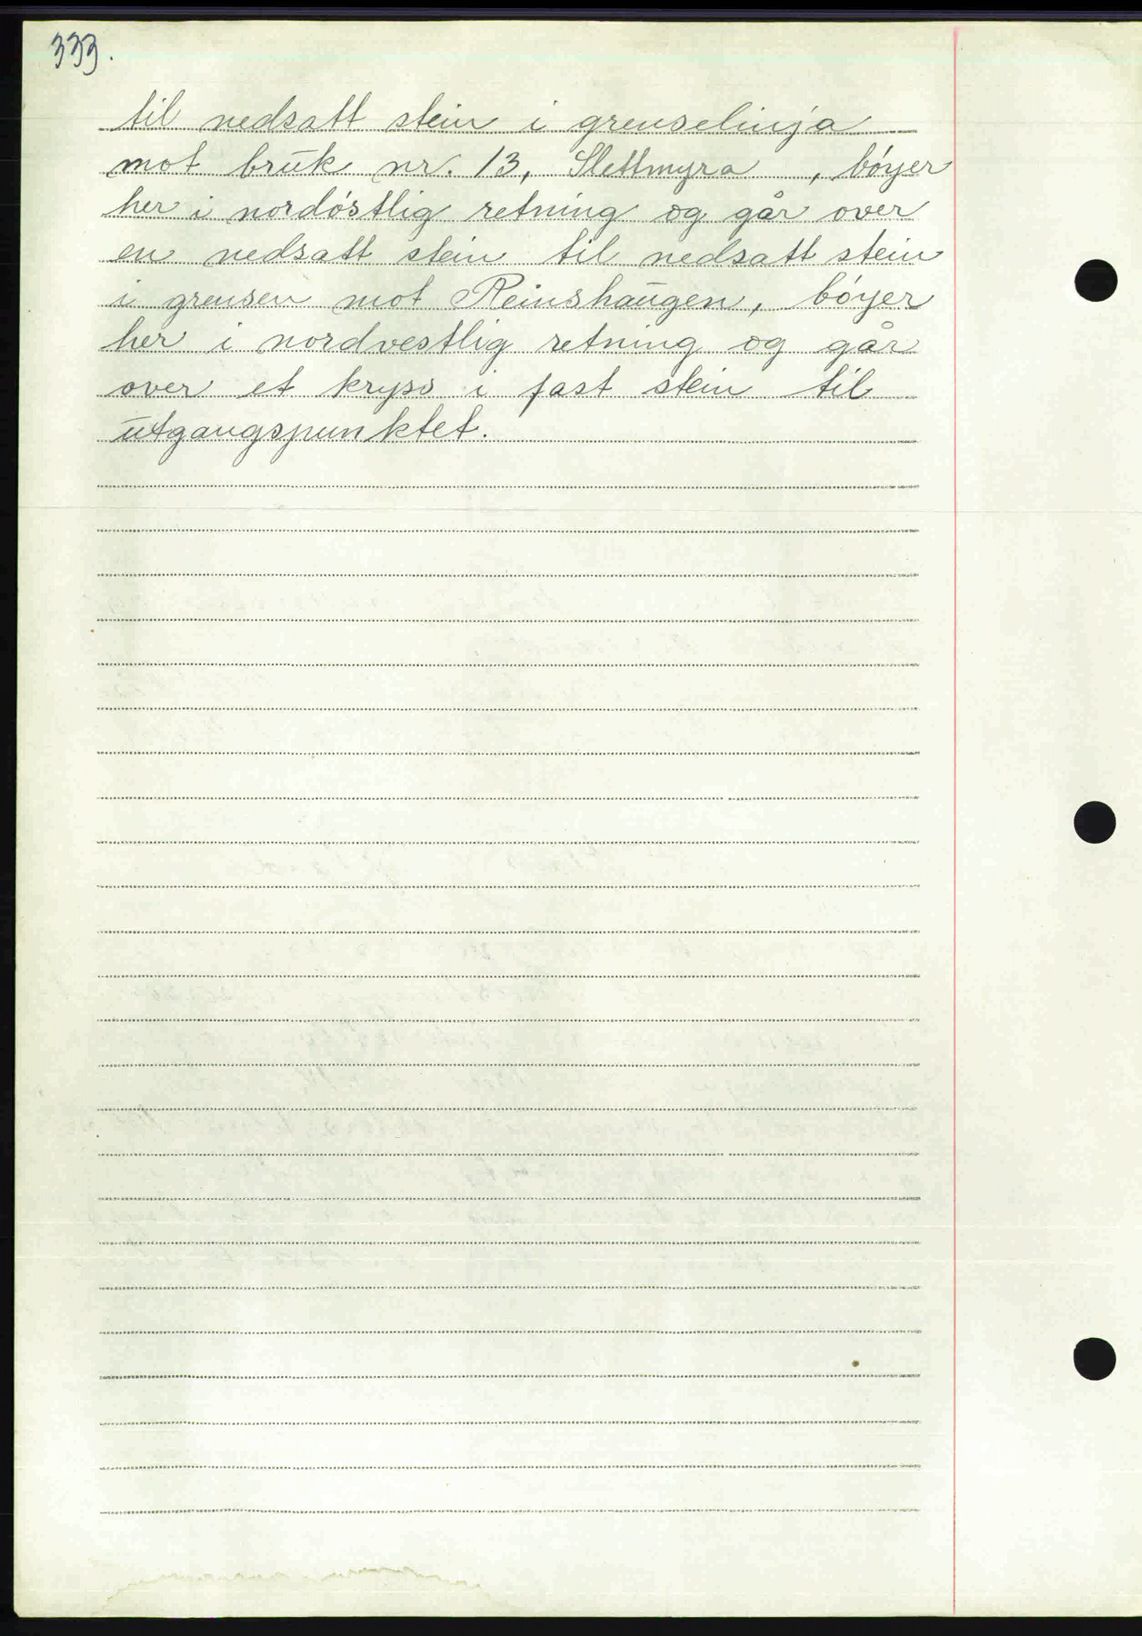 333.
til nedsatt stein i grenselinja
mot bruk nr. 13, Slettmyra , bøyer
her i nordøstlig retning og går over
en nedsatt stein til nedsatt stein
i grensen mot Reinshaugen, bøyer
her i nordvestlig retning og går
over et kryss i fast stein til
utgangspunktet.